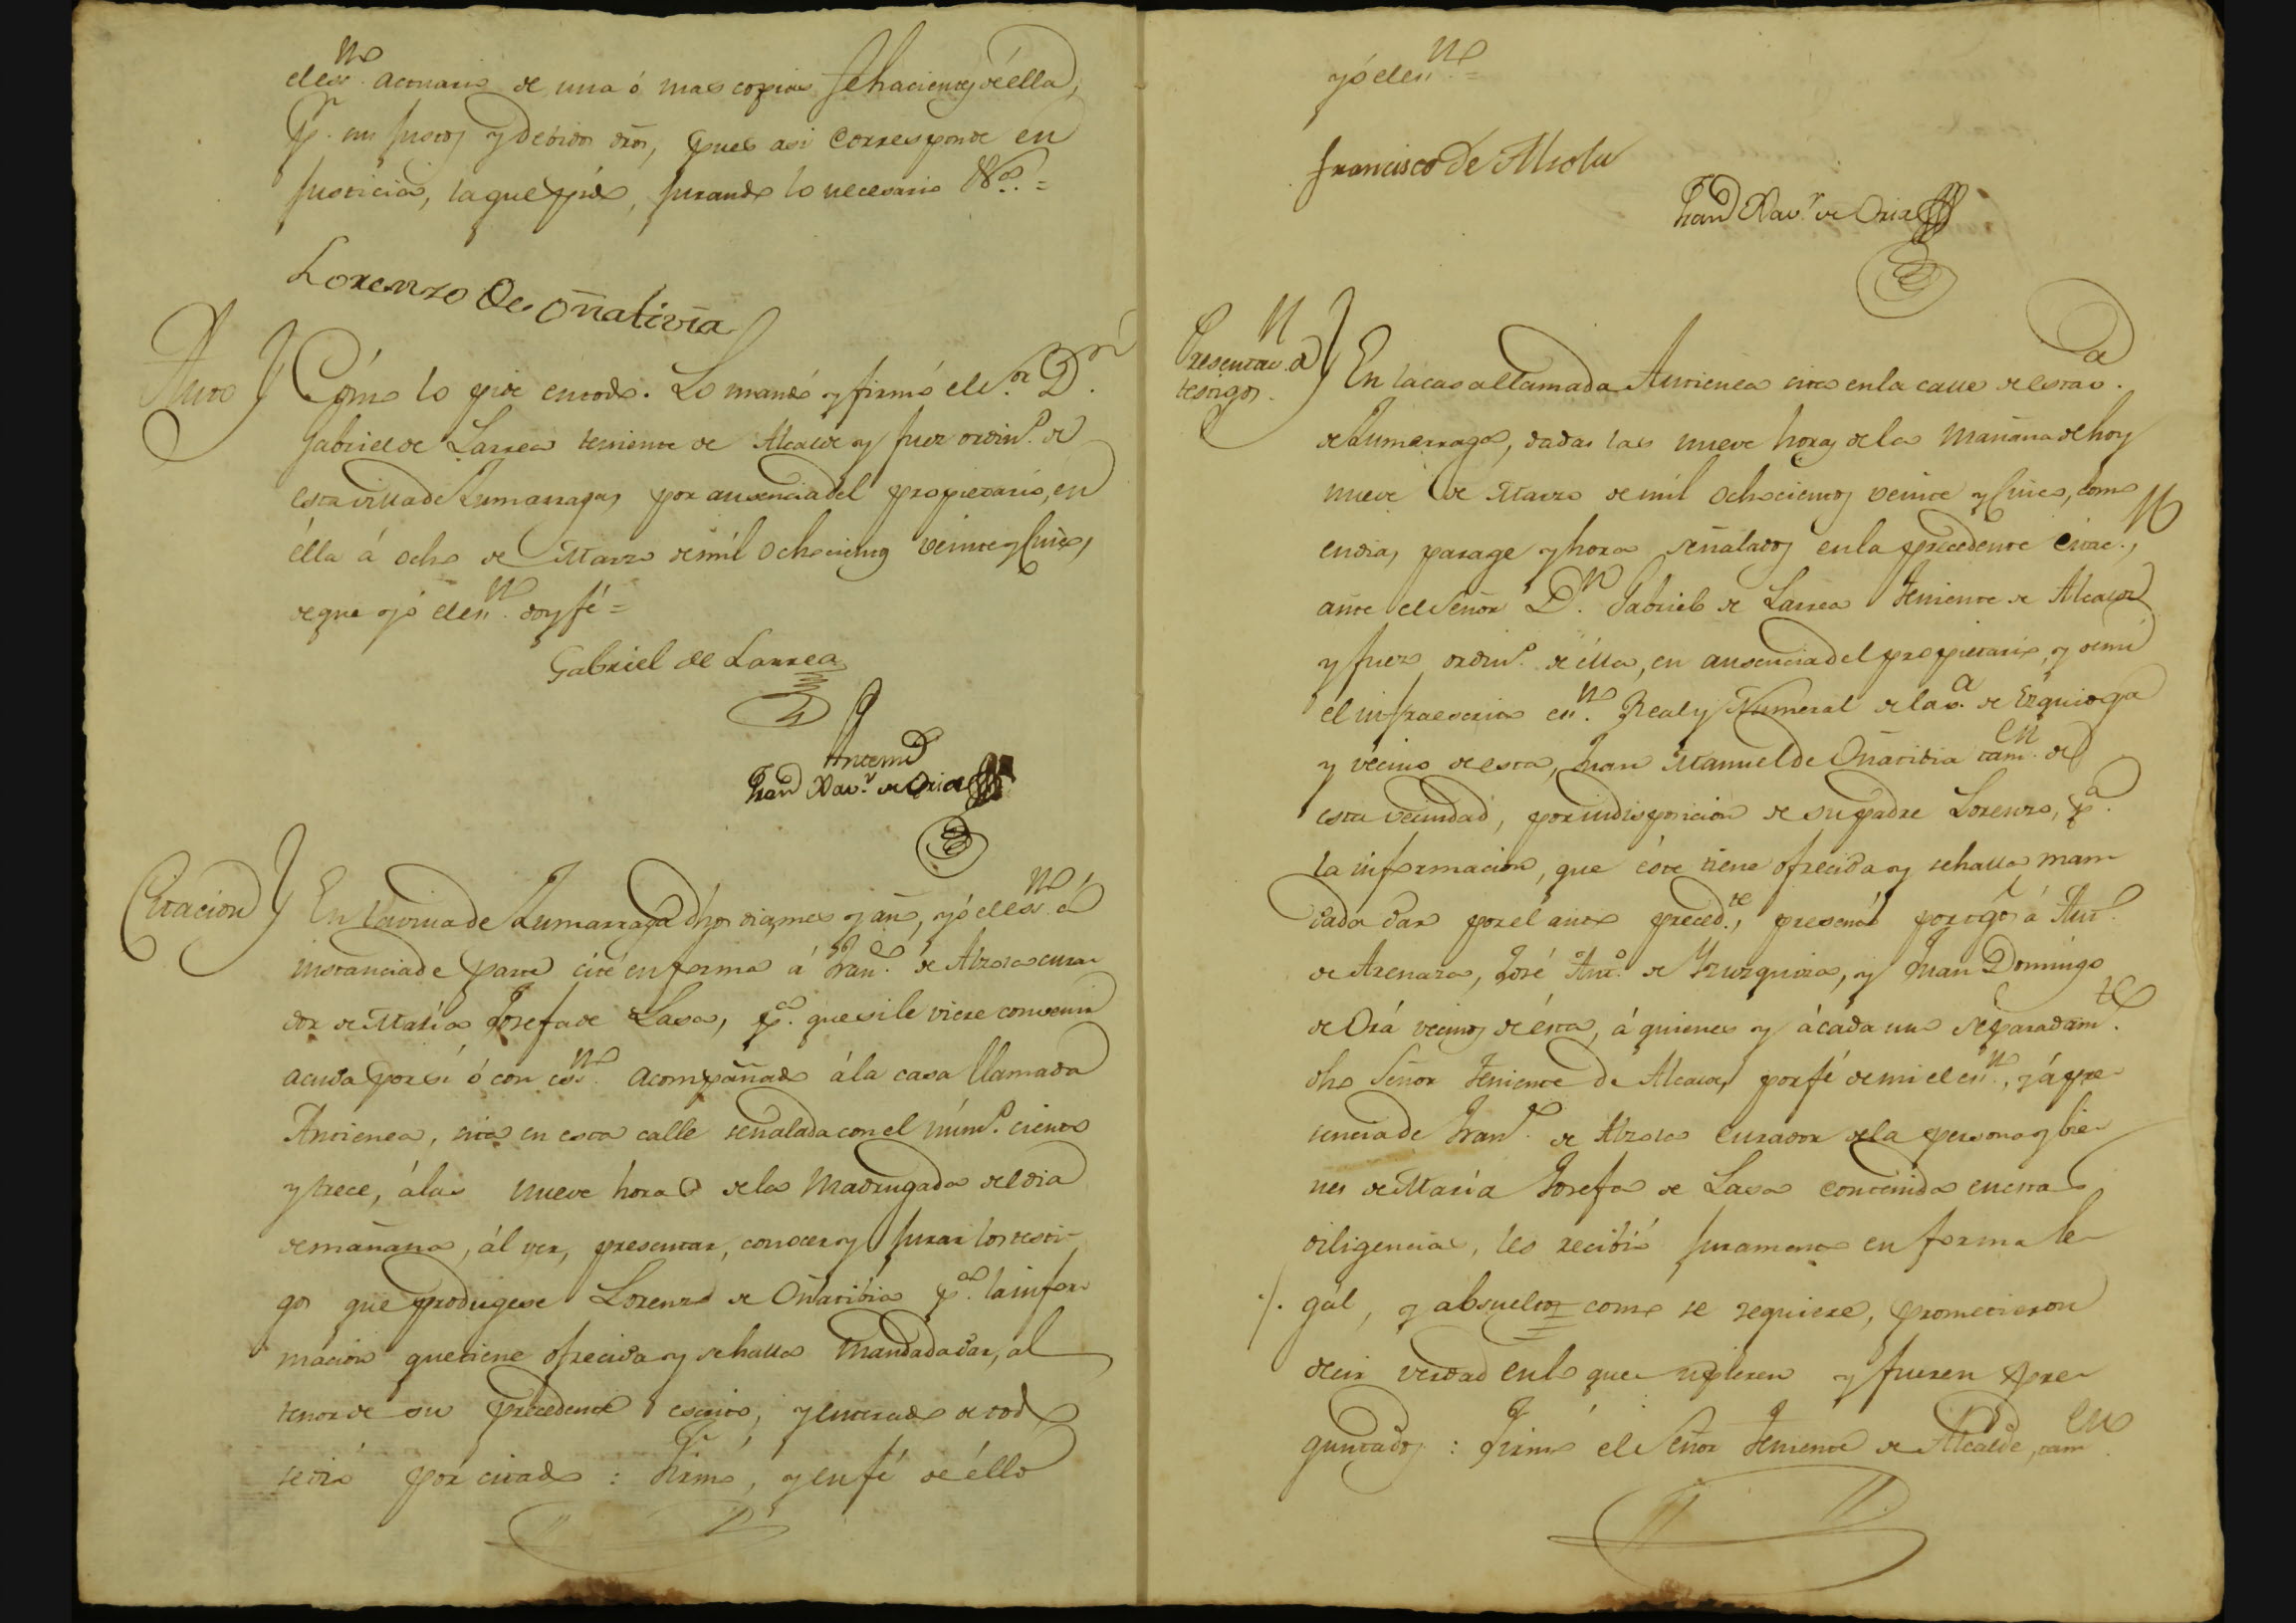 el ess.no actuario de una ó mas copias fehacientes de ella,
p.r mis justos y debidos dros, pues asi corresponde en
Justicia, la que pido, jurando lo necesario &.a =
Lorenzo de Oñativia
Auto } Cómo lo pide en todo. Lo mandó y firmó el S.or D.n
Gabriel de Larrea teniente de Alcalde y Juez ordin.o de
esta villa de Zumarraga, por ausencia del propietario, en
élla á ocho de Marzo de mil ochocientos veinte y cinco,
de que yó el es.no doy fé =
Gabriel de Larrea
Antemi
Fran.co Xav.r de Oria
Citacion } En la villa de Zumarraga dhos dia, mes y año, yó el es.no á
instancia de parte cité en forma á Fran.co de Alzola cura-
dor de Maria Josefa de Lasa, p.a que si le viere convenir
acuda por sí ó con ess.no acompañado á la casa llamada
Antienea, sita en esta calle señalada con el núm.o ciento
y trece, á las nueve horas de la madrugada del dia
de mañana, ál ver, presentar, conocer y jurar los testi-
gos que produgese Lorenzo de Oñatibia p.a la infor-
macion que tiene ofrecida y se halla mandada dar, al
tenor de su precedente escrito, y enterado de todo
se dió por citado : Firmó, y en fé de éllo
yó el es.no =
Francisco de Alzola
Fran.co Xav.r de Oria
Presentac.n de
testigos. } En la casa llamada Antienea sita en la calle de esta v.a
de Zumarraga, dadas las nueve horas de la mañana de hoy
nueve de Marzo de mil ochocientos veinte y cinco, como
en dia, parage y hora señalados en la precedente citac.n,
ante el Señor D.n Gabriel de Larrea teniente de Alcalde
y Juez ordin.o de élla, en ausencia del propietario, y de mi
el infraescrito es.no Real y Numeral de la v.a de Ezquioga
y vecino de esta, Juan Manuel de Oñatibia tam.en de
esta vecindad, por indisposicion de su padre Lorenzo, p.a
la informacion, que éste tiene ofrecida y se halla man-
dada dar por el auto preced.te, presentó por tgos á Ant.o
de Arenaza, José Ant.o de Yzuzquiza, y Juan Domingo
de Orá vecinos de ésta, á quienes y á cada uno separadam.te
dho Señor teniente de Alcalde, por fé de mi el es.no, y á pre-
sencia de Fran.co de Alzola curador de la persona y bie-
nes de María Josefa de Lasa contenida en esta
diligencia, les recibió juramento en forma le-
gál, y absueltos como se requiere, prometieron
decir verdad en lo que supieren y fuesen pre-
guntados : Firmó el Señor teniente de Alcalde, tam.en